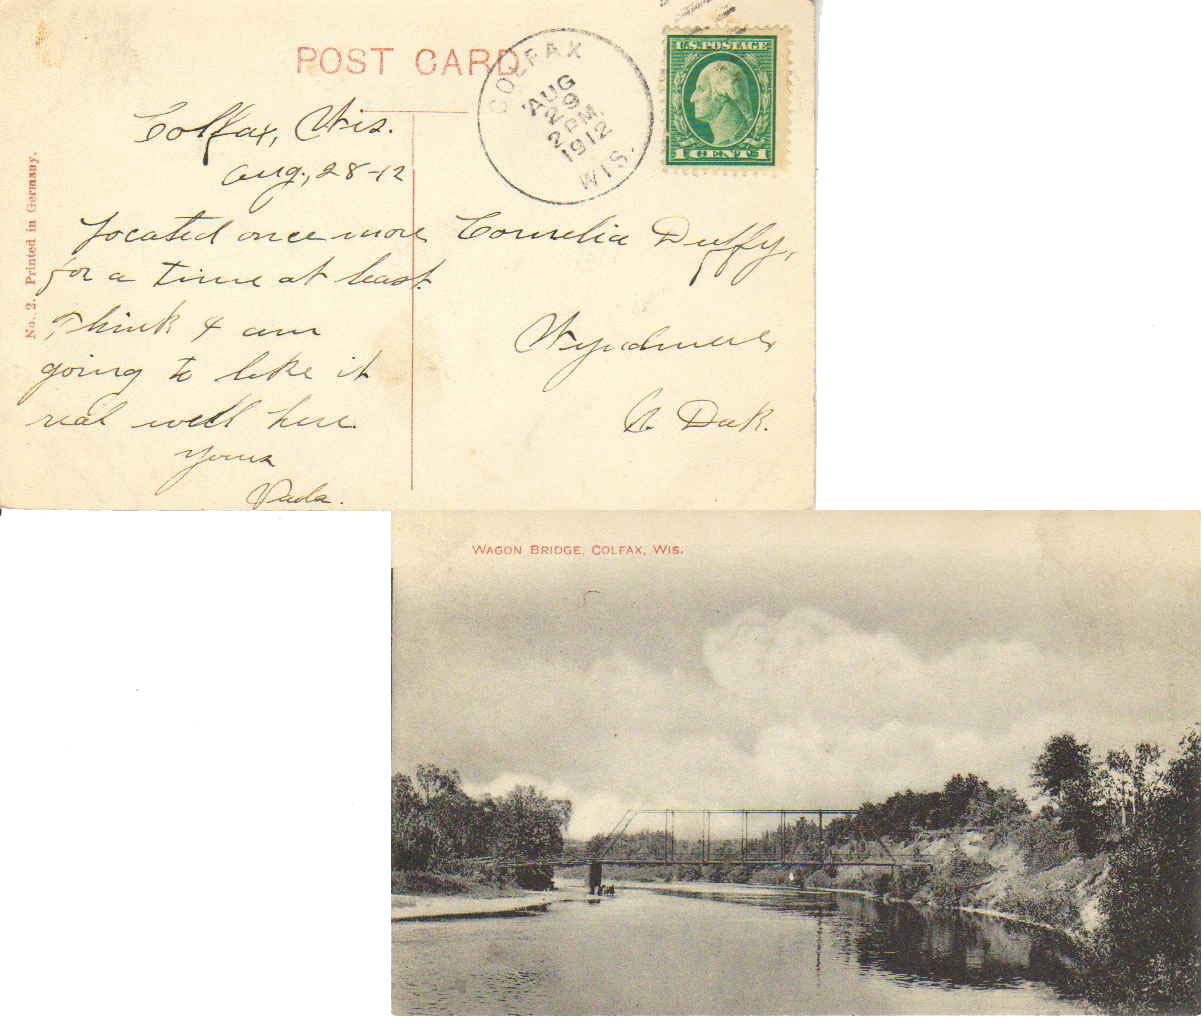 POST CARD
COLFAX
AUG
29
2 PM
1912
WIS.
U.S. POSTAGE
1 CENT 1
No. 2. Printed in Germany.
Colfax, Wis.
Aug., 28-12
Located once more
for a time at least.
Think I am
going to like it
real well here.
Yours
Vada.
Cornelia Duffy,
Wyndmere
N. Dak.
WAGON BRIDGE, COLFAX, WIS.